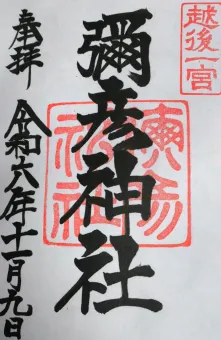 越後一宮
彌彦神社
奉拝
令和六年十一月九日